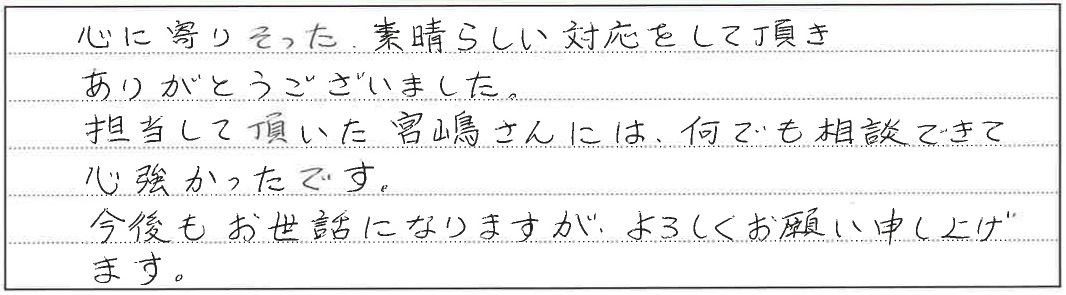 心に寄りそった、素晴らしい対応をして頂き
ありがとうございました。
担当して頂いた宮嶋さんには、何でも相談できて
心強かったです。
今後もお世話になりますが、よろしくお願い申し上げ
ます。